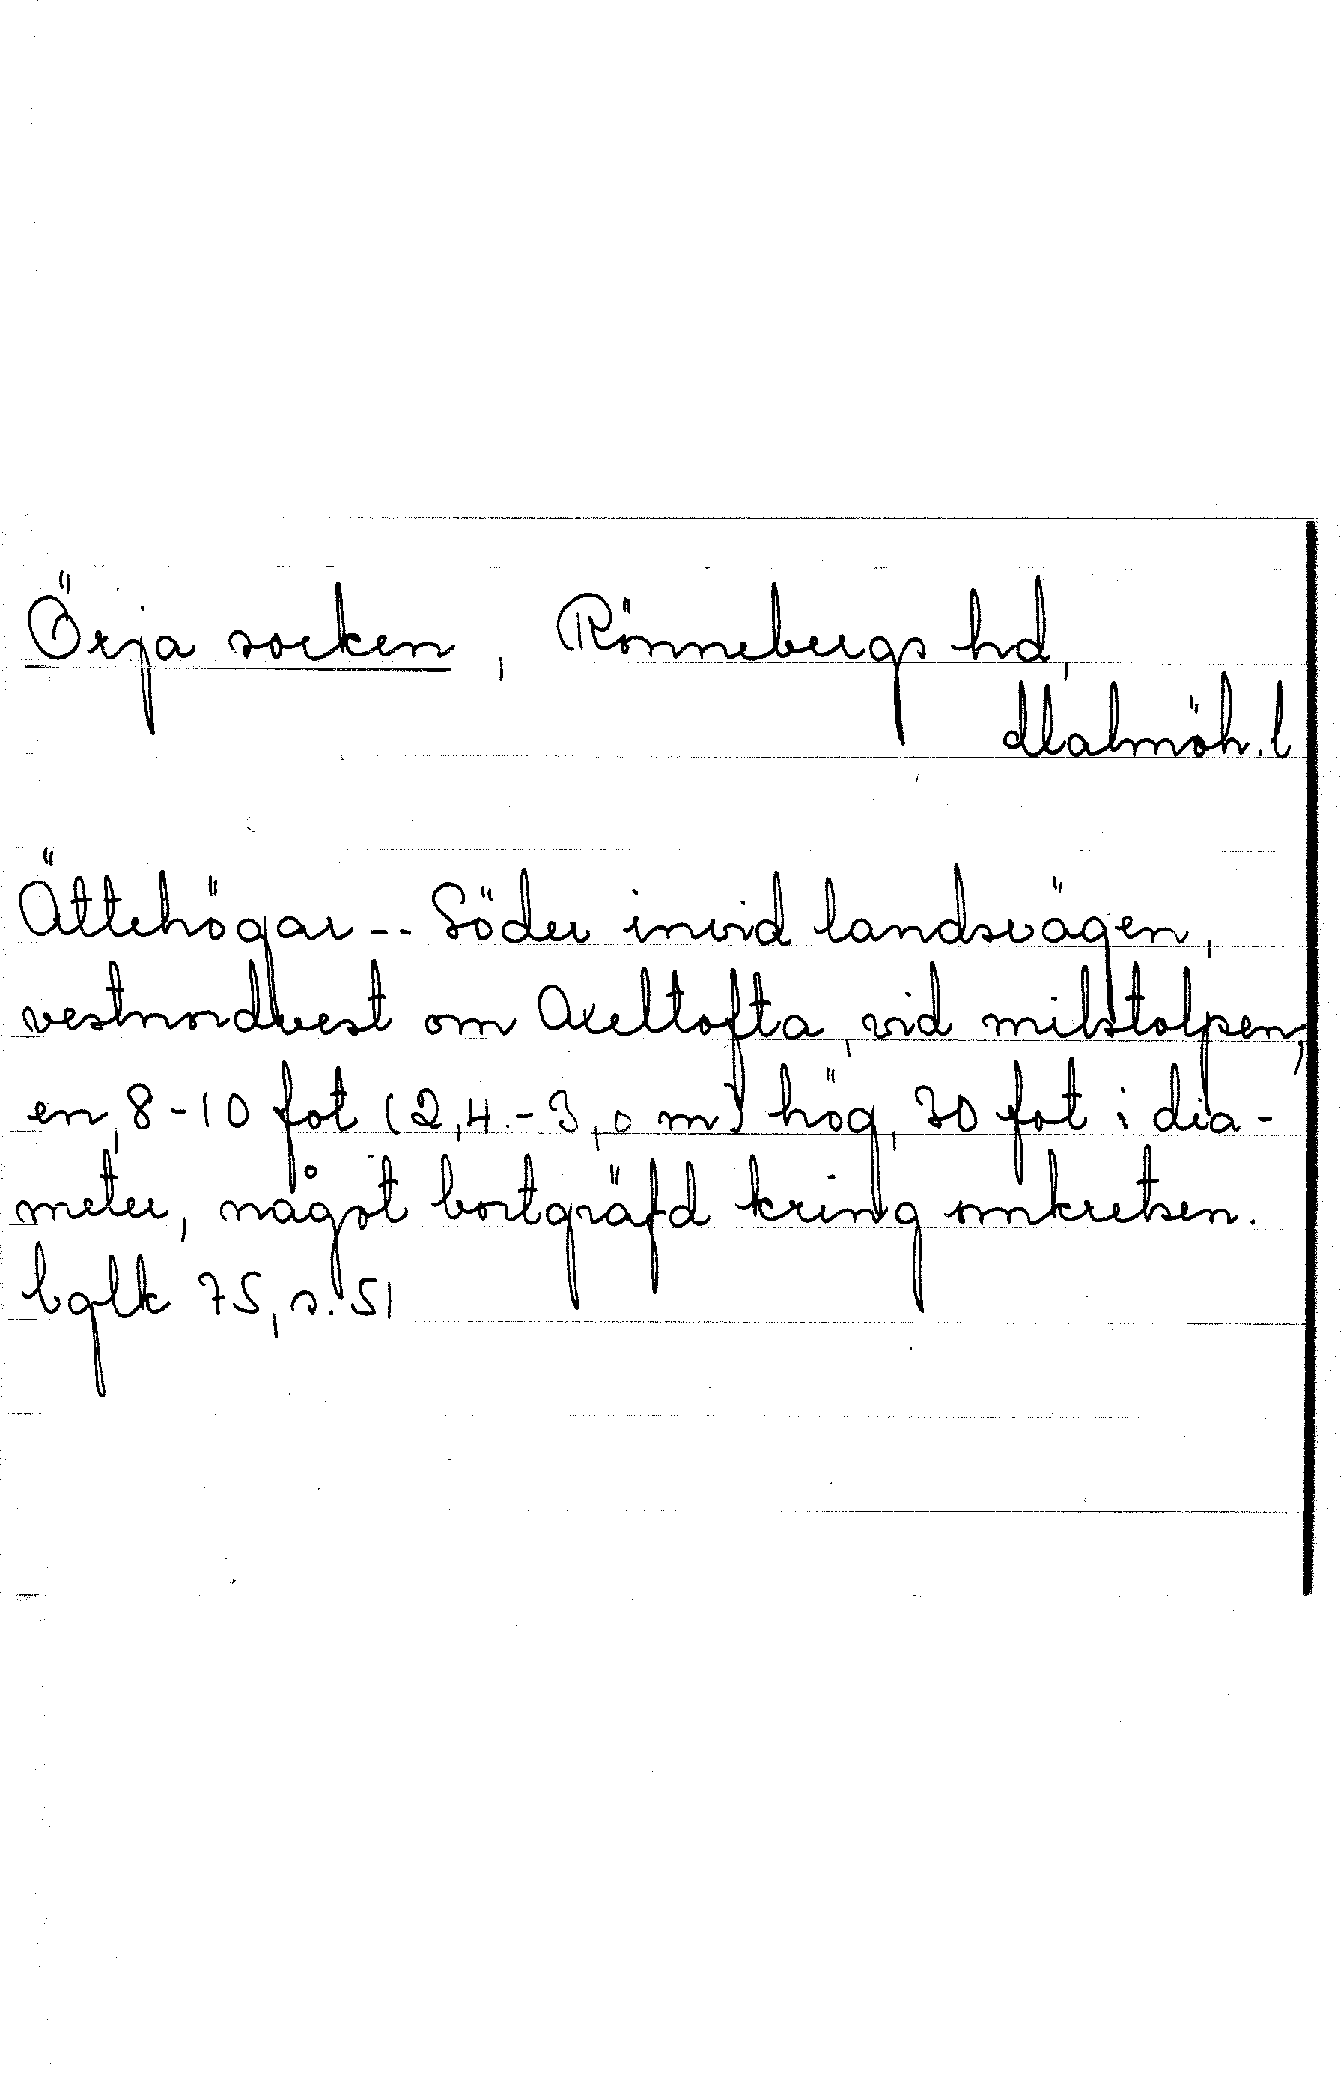 Örja socken, Rönnebergs hd,
Malmöh. l
Ättehögar -- Söder invid landsvägen,
vestnordvest om Axeltofta, vid milstolpen,
en, 8-10 fot (2,4.-3,0 m) hög, 30 fot i dia-
meter, något bortgräfd kring omkretsen.
bglk 75, s. 51